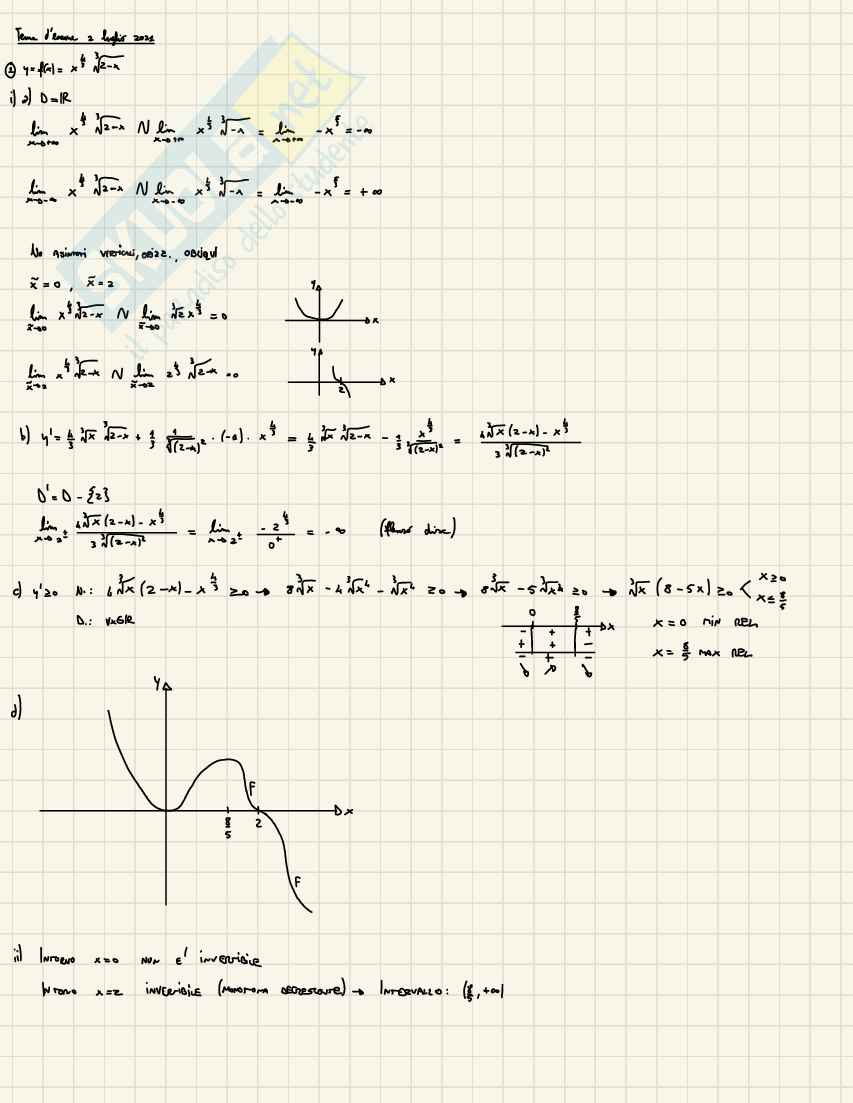 Tema d'esame 2 luglio 2021
① y = f(x) = x^{4/3} ∛(2-x)
i) a) D = ℝ
lim x→+∞ x^{4/3} ∛(2-x) ~ lim x→+∞ x^{4/3} ∛(-x) = lim x→+∞ -x^{5/3} = -∞
lim x→-∞ x^{4/3} ∛(2-x) ~ lim x→-∞ x^{4/3} ∛(-x) = lim x→-∞ -x^{5/3} = +∞
No asintoti verticali, orizz., obliqui
x̃ = 0 , x̃ = 2
lim x̃→0 x^{4/3} ∛(2-x) ~ lim x̃→0 ∛2 x^{4/3} = 0
y x
lim x̃→2 x^{4/3} ∛(2-x) ~ lim x̃→2 2^{4/3} ∛(2-x) = 0
y x 2
b) y' = 4/3 ∛x ∛(2-x) + 1/3 1/∛(2-x)² · (-1) · x^{4/3} = 4/3 ∛x ∛(2-x) - 1/3 x^{4/3}/∛(2-x)² = (4∛x (2-x) - x^{4/3}) / (3 ∛(2-x)²)
D' = D - {2}
lim x→2± (4∛x (2-x) - x^{4/3}) / (3 ∛(2-x)²) = lim x→2± -2^{4/3}/0⁺ = -∞ (flesso disc)
c) y' ≥ 0 N.: 4∛x (2-x) - x^{4/3} ≥ 0 → 8∛x - 4∛x⁴ - ∛x⁴ ≥ 0 → 8∛x - 5∛x⁴ ≥ 0 → ∛x (8-5x) ≥ 0 < x ≥ 0 x ≤ 8/5
D.: ∀x∈ℝ
0 8/5 x
- + +
+ + -
- + -
x = 0 MIN REL
x = 8/5 MAX REL
d)
y
F
x
8/5 2
F
ii) INTORNO x=0 NON E' INVERTIBILE
INTORNO x=2 INVERTIBILE (MONOTONA DECRESCENTE) → INTERVALLO: (8/5, +∞)
SKUOLA.net
il paradiso dello studente